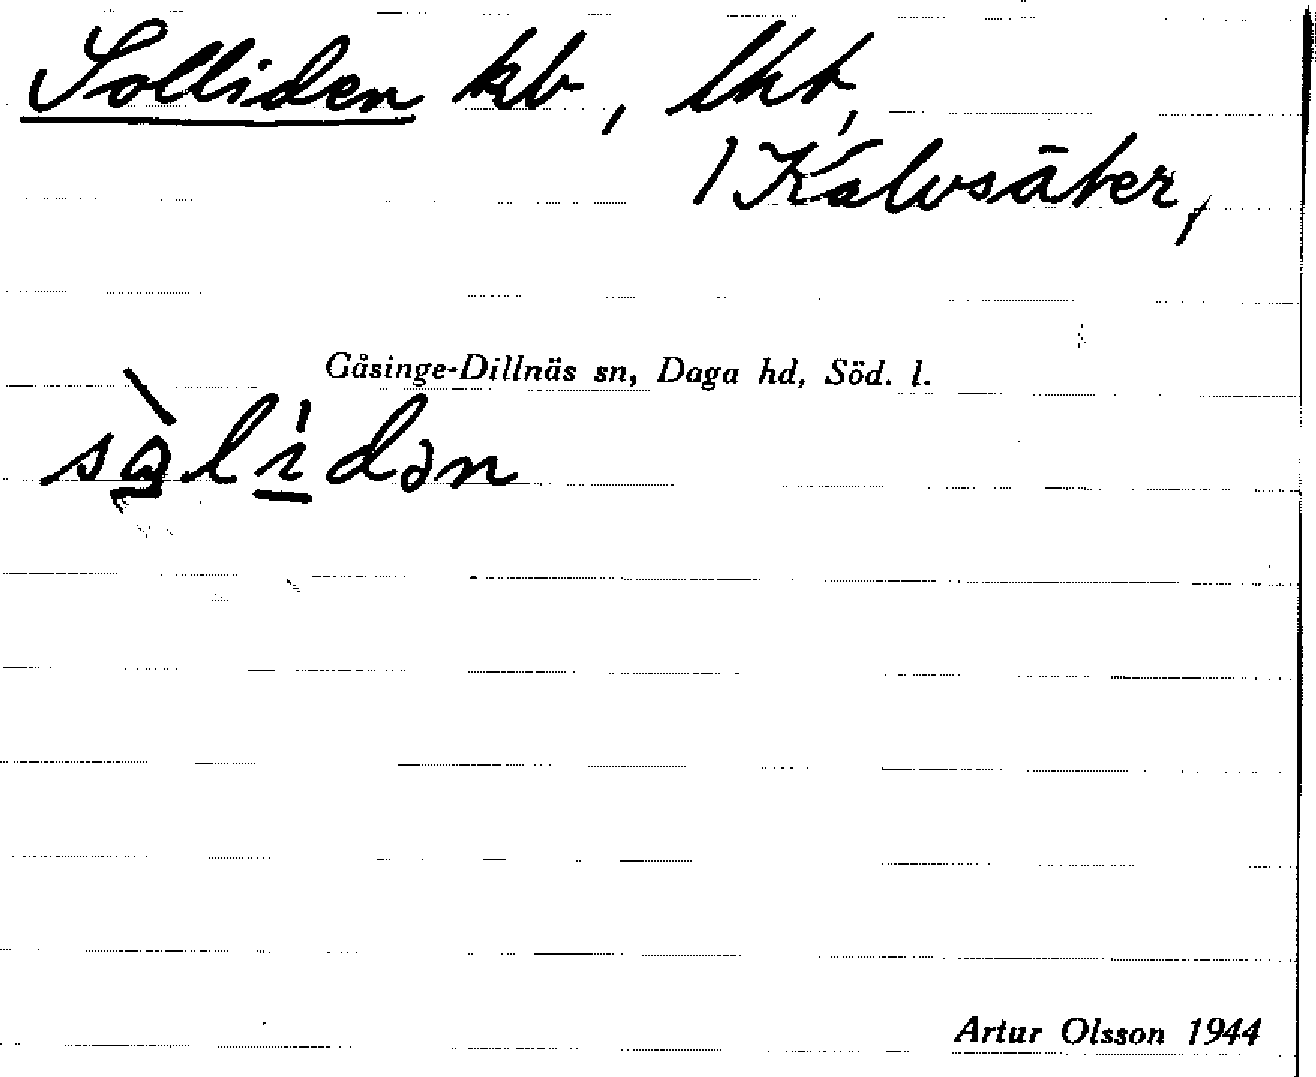 Solliden kb, lht,
1 Kalvsäter,
Gåsinge-Dillnäs sn, Daga hd, Söd. l.
Artur Olsson 1944